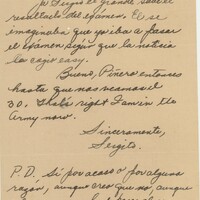 yo Sergio el grande, sabré el
resultado del exámen. El se
imaginaba que yo iba a pasar
el exámen seguro que la noticia
lo cogio easy.
Bueno, Piñero entonces
hasta que nos veamos el
30. That's right I am in the
Army now.
Sinceramente,
Sergito.
P.D. Sí por acaso o por alguna
razón, aunque creo que no, aunque